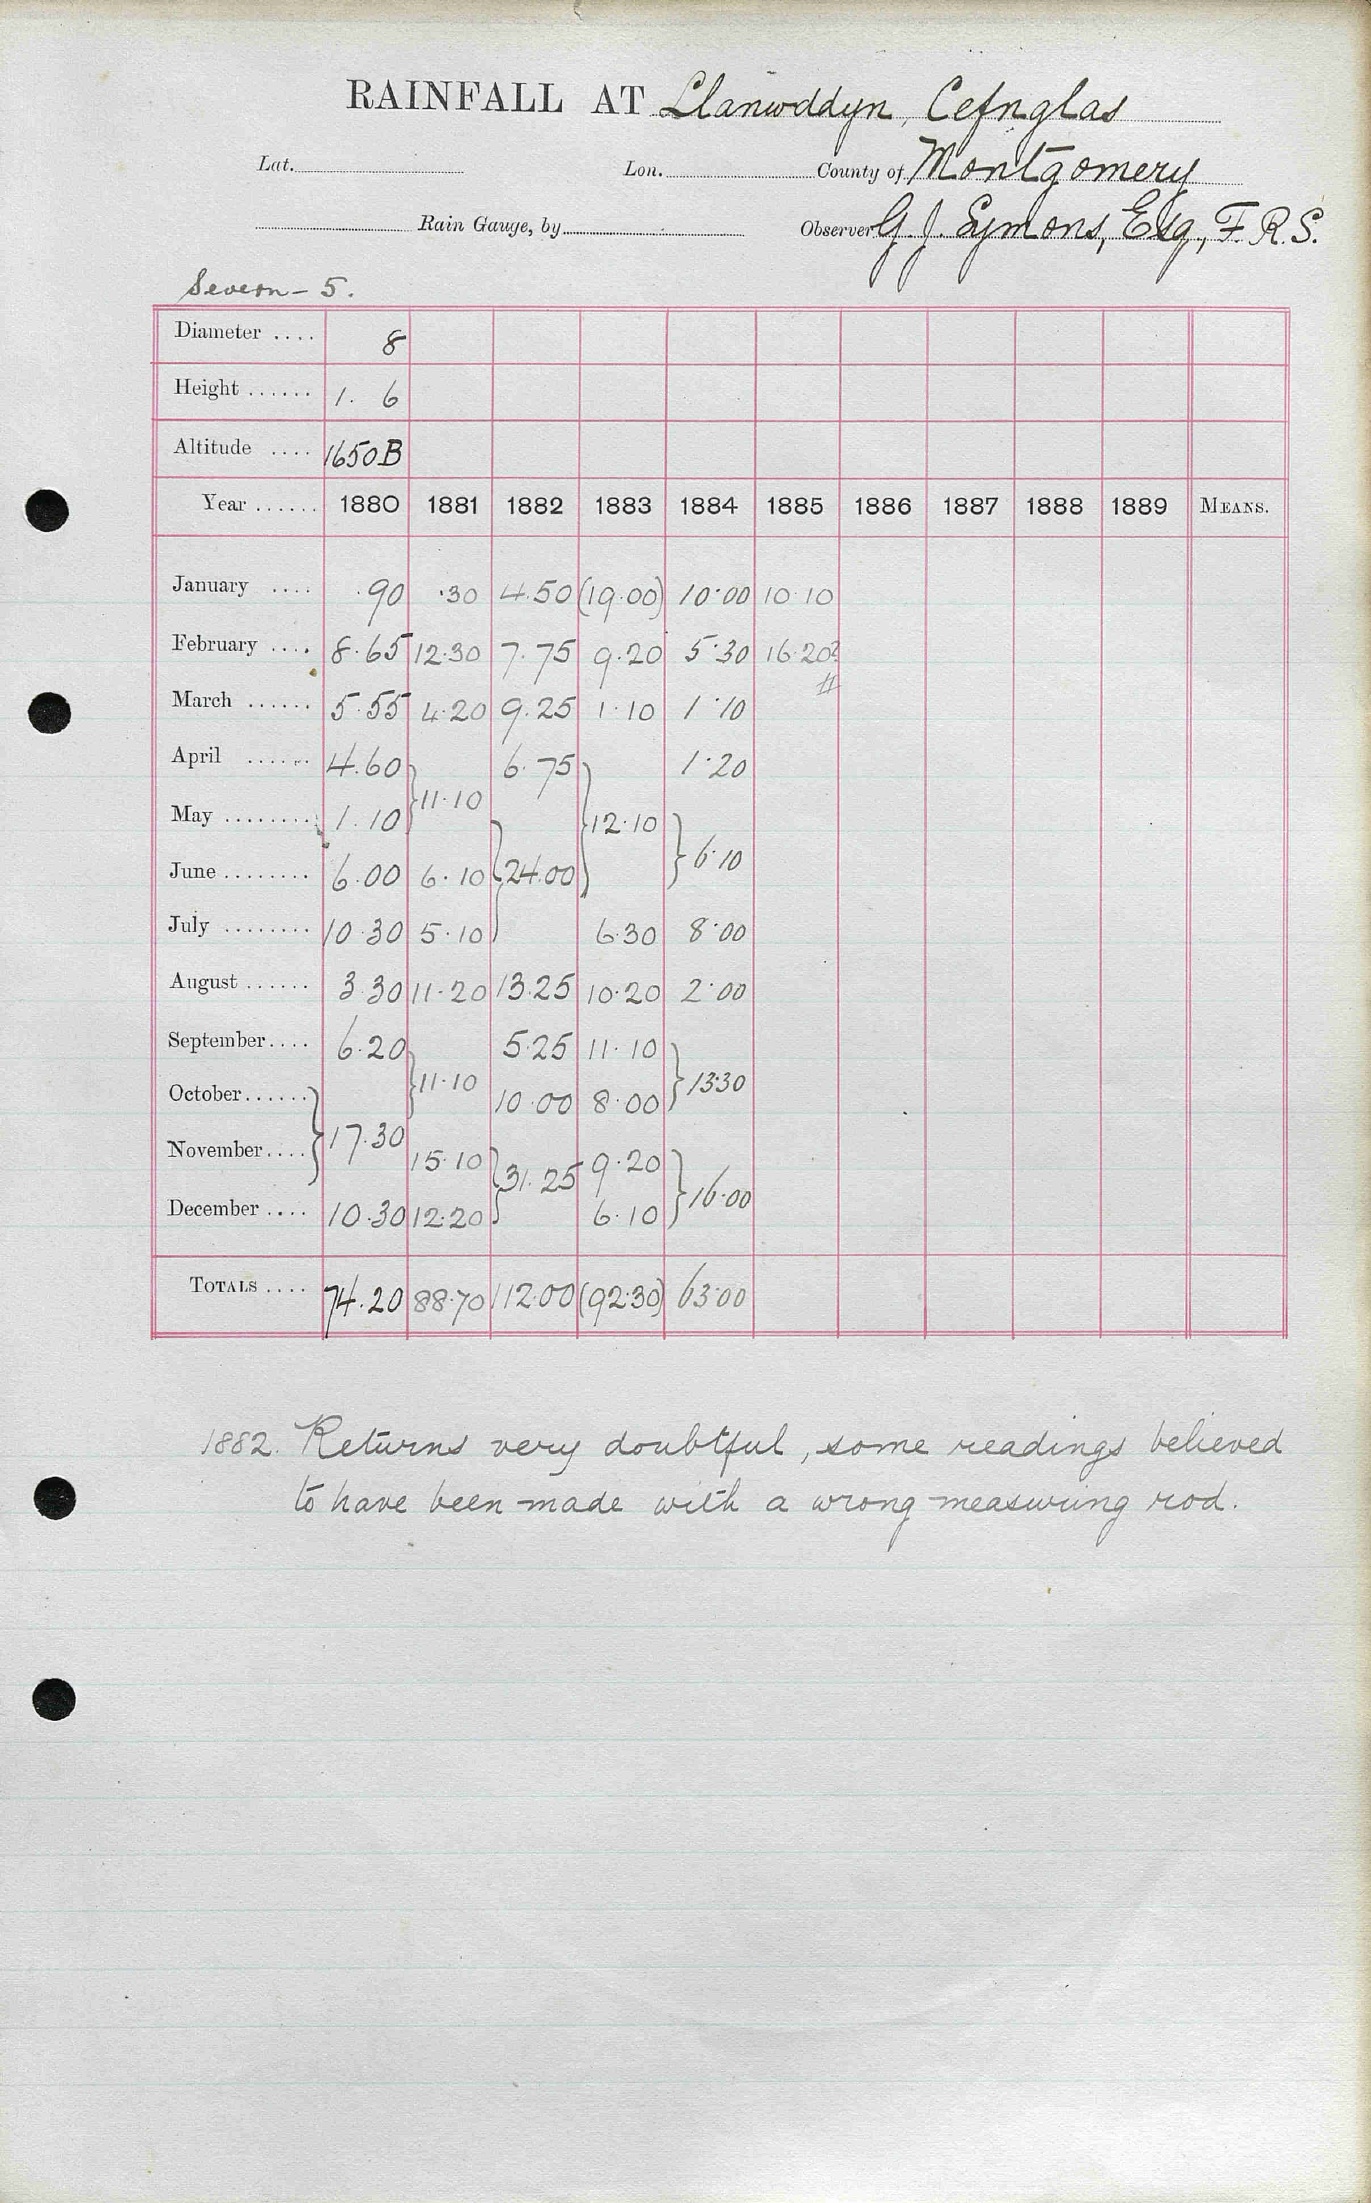 RAINFALL AT Llanwddyn, Cefnglas
Lat. Lon. County of Montgomery
Rain Gauge, by Observer G. J. Symons, Esq, F.R.S.
Severn - 5.
Diameter .... 8
Height ...... 1. 6
Altitude .... 1650B
Year ...... 1880 1881 1882 1883 1884 1885 1886 1887 1888 1889 MEANS.
January .... .90 .30 4.50 (19.00) 10.00 10.10
February .... 8.65 12.30 7.75 9.20 5.30 16.20?
#
March ...... 5.55 4.20 9.25 1.10 1.10
April ...... 4.60 } 6.75 } 1.20
May ........ 1.10 11.10 { 12.10 }
June ........ 6.00 6.10 24.00 6.10
July ........ 10.30 5.10 6.30 8.00
August ...... 3.30 11.20 13.25 10.20 2.00
September .... 6.20 } 5.25 11.10 }
October ...... } 11.10 10.00 8.00 13.30
November .... 17.30 15.10 } 31.25 9.20 } 16.00
December .... 10.30 12.20 6.10
TOTALS .... 74.20 88.70 112.00 (92.30) 63.00
1882. Returns very doubtful, some readings believed
to have been made with a wrong measuring rod.